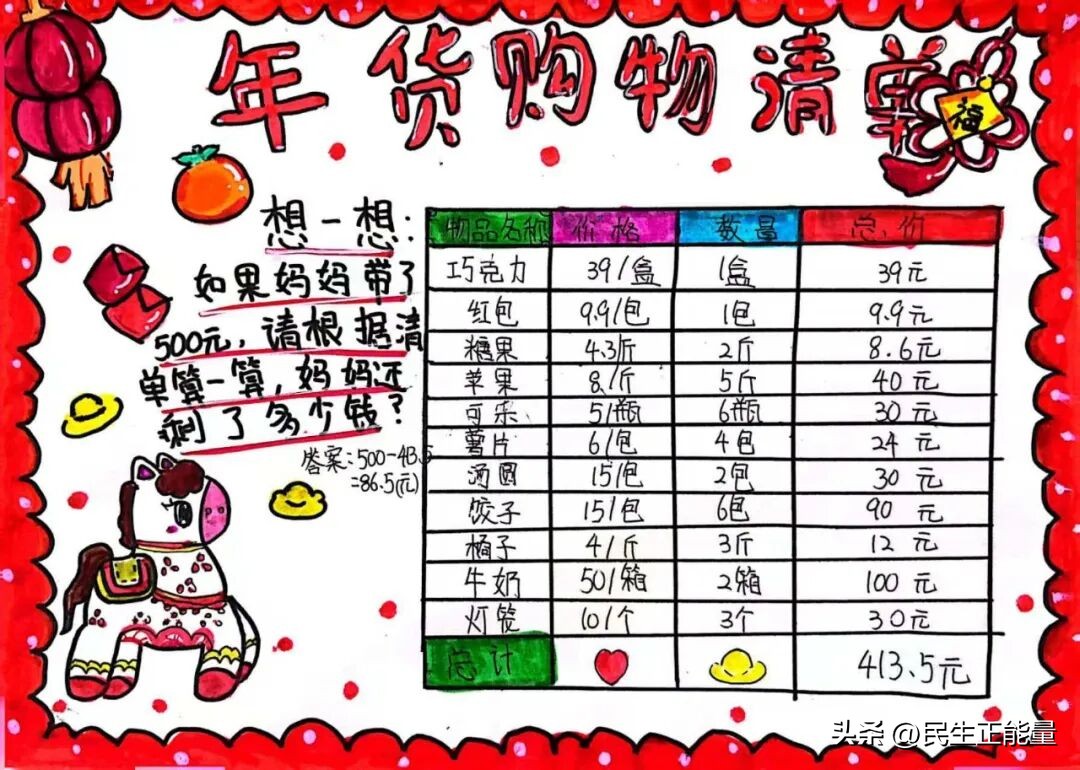 年货购物清单
福
想一想:
如果妈妈带了
500元,请根据清
单算一算,妈妈还
剩了多少钱?
答案:500-413.5
=86.5(元)
物品名称 价格 数量 总价
巧克力 39/盒 1盒 39元
红包 9.9/包 1包 9.9元
糖果 4.3/斤 2斤 8.6元
苹果 8/斤 5斤 40元
可乐 5/瓶 6瓶 30元
薯片 6/包 4包 24元
汤圆 15/包 2包 30元
饺子 15/包 6包 90元
橘子 4/斤 3斤 12元
牛奶 50/箱 2箱 100元
灯笼 10/个 3个 30元
总计 413.5元
头条 @民生正能量